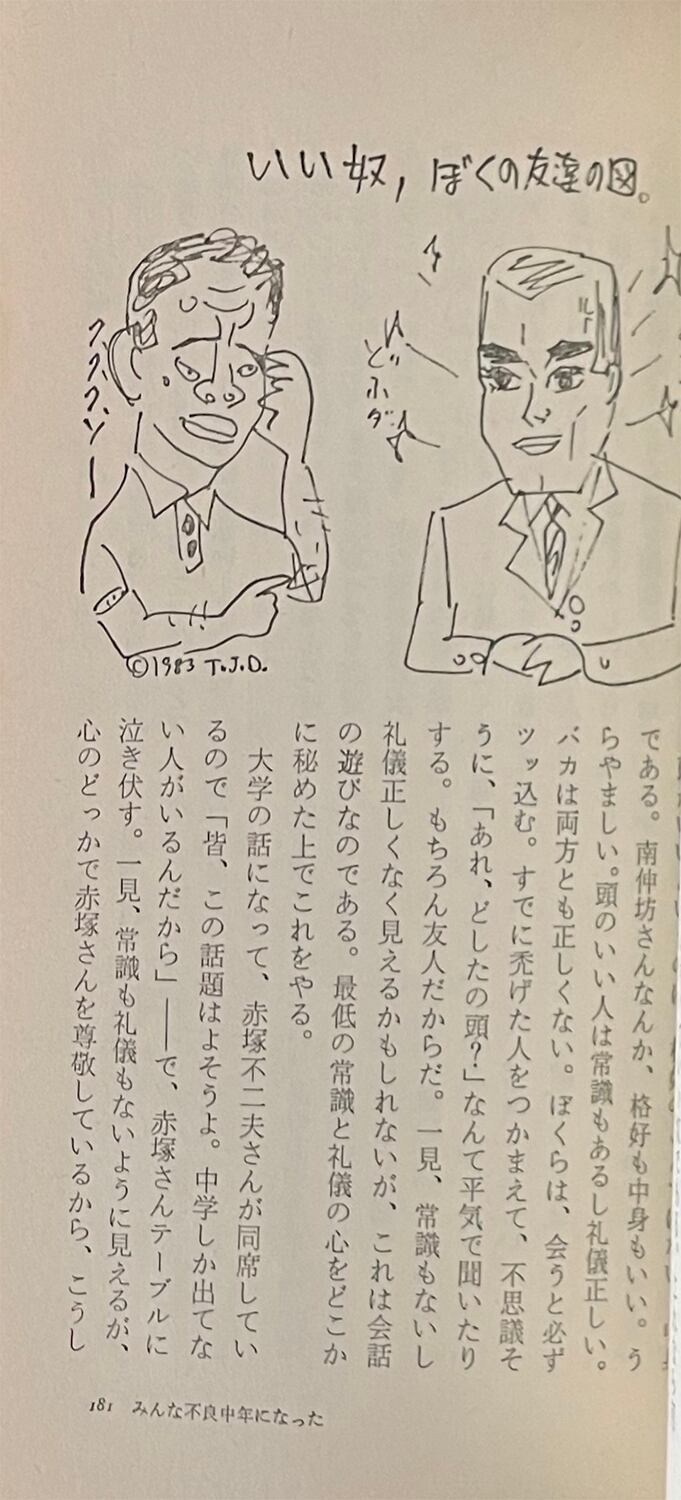 いい奴,ぼくの友達の図。
ククク、ソー
©1983 T.J.D.
である。南伸坊さんなんか、格好も中身もいい。う
らやましい。頭のいい人は常識もあるし礼儀正しい。
バカは両方とも正しくない。ぼくらは、会うと必ず
ツッ込む。すでに禿げた人をつかまえて、不思議そ
うに、「あれ、どしたの頭?」なんて平気で聞いたり
する。もちろん友人だからだ。一見、常識もないし
礼儀正しくなく見えるかもしれないが、これは会話
の遊びなのである。最低の常識と礼儀の心をどこか
に秘めた上でこれをやる。
大学の話になって、赤塚不二夫さんが同席してい
るので「皆、この話題はよそうよ。中学しか出てな
い人がいるんだから」――で、赤塚さんテーブルに
泣き伏す。一見、常識も礼儀もないように見えるが、
心のどっかで赤塚さんを尊敬しているから、こうし
181 みんな不良中年になった